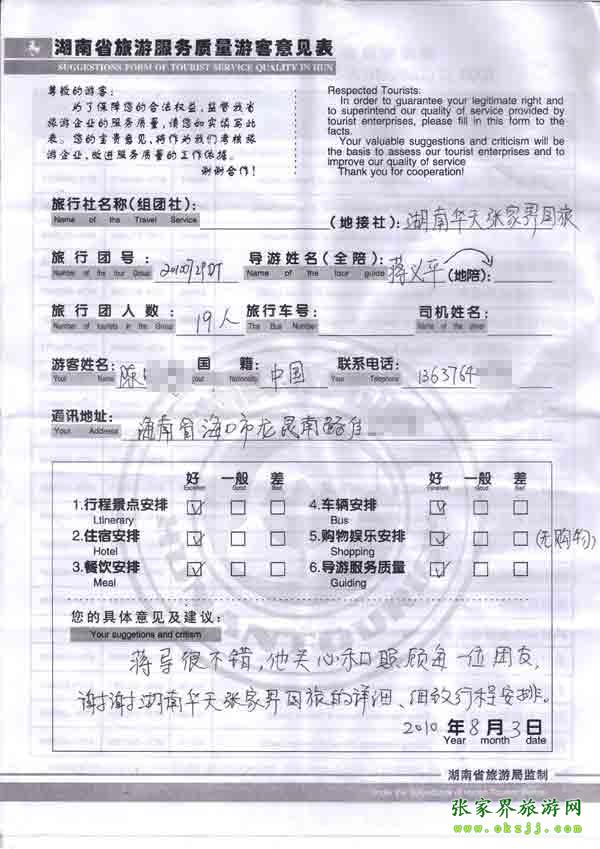 湖南省旅游服务质量游客意见表
SUGGESTIONS FORM OF TOURIST SERVICE QUALITY IN HUN
尊敬的游客:
为了保障您的合法权益,监督我省
旅游企业的服务质量,请您如实填写此
表。您的宝贵意见,将作为我们考核旅
游企业,改进服务质量的工作依据。
谢谢合作!
Respected Tourists:
In order to guarantee your legitimate right and
to superintend our quality of service provided by
tourist enterprises, please fill in this form to the
facts.
Your valuable suggestions and criticism will
be the basis to assess our tourist enterprises and to
improve our quality of service
Thank you for cooperation!
旅行社名称(组团社): (地接社): 湖南华天张家界国旅
Name of the Travel Service
旅行团号: 导游姓名(全陪): 蒋义平 (地陪):
Number of the tour Group Name of the tour guide
旅行团人数: 19人 旅行车号: 司机姓名:
Number of tourists in the Group The Bus Number Name of the driver
游客姓名: 陈 国籍: 中国 联系电话: 1363764
Your Name Nationality Your Telephone
通讯地址: 海南省海口市龙昆南路
Your Address
好 一般 差 好 一般 差
Excellent Good Bad Excellent Good Bad
1.行程景点安排 ☑ ☐ ☐ 4.车辆安排 ☑ ☐ ☐
Ltinerary Bus
2.住宿安排 ☑ ☐ ☐ 5.购物娱乐安排 ☑ ☐ ☐ (无购物)
Hotel Shopping
3.餐饮安排 ☑ ☐ ☐ 6.导游服务质量 ☑ ☐ ☐
Meal Guiding
您的具体意见及建议:
Your suggetions and critism
蒋导很不错,他关心和照顾每一位团友,
谢谢湖南华天张家界国旅的详细、细致行程安排。
2010 年 8 月 3 日
Year month date
湖南省旅游局监制
张家界旅游网
www.okzjj.com